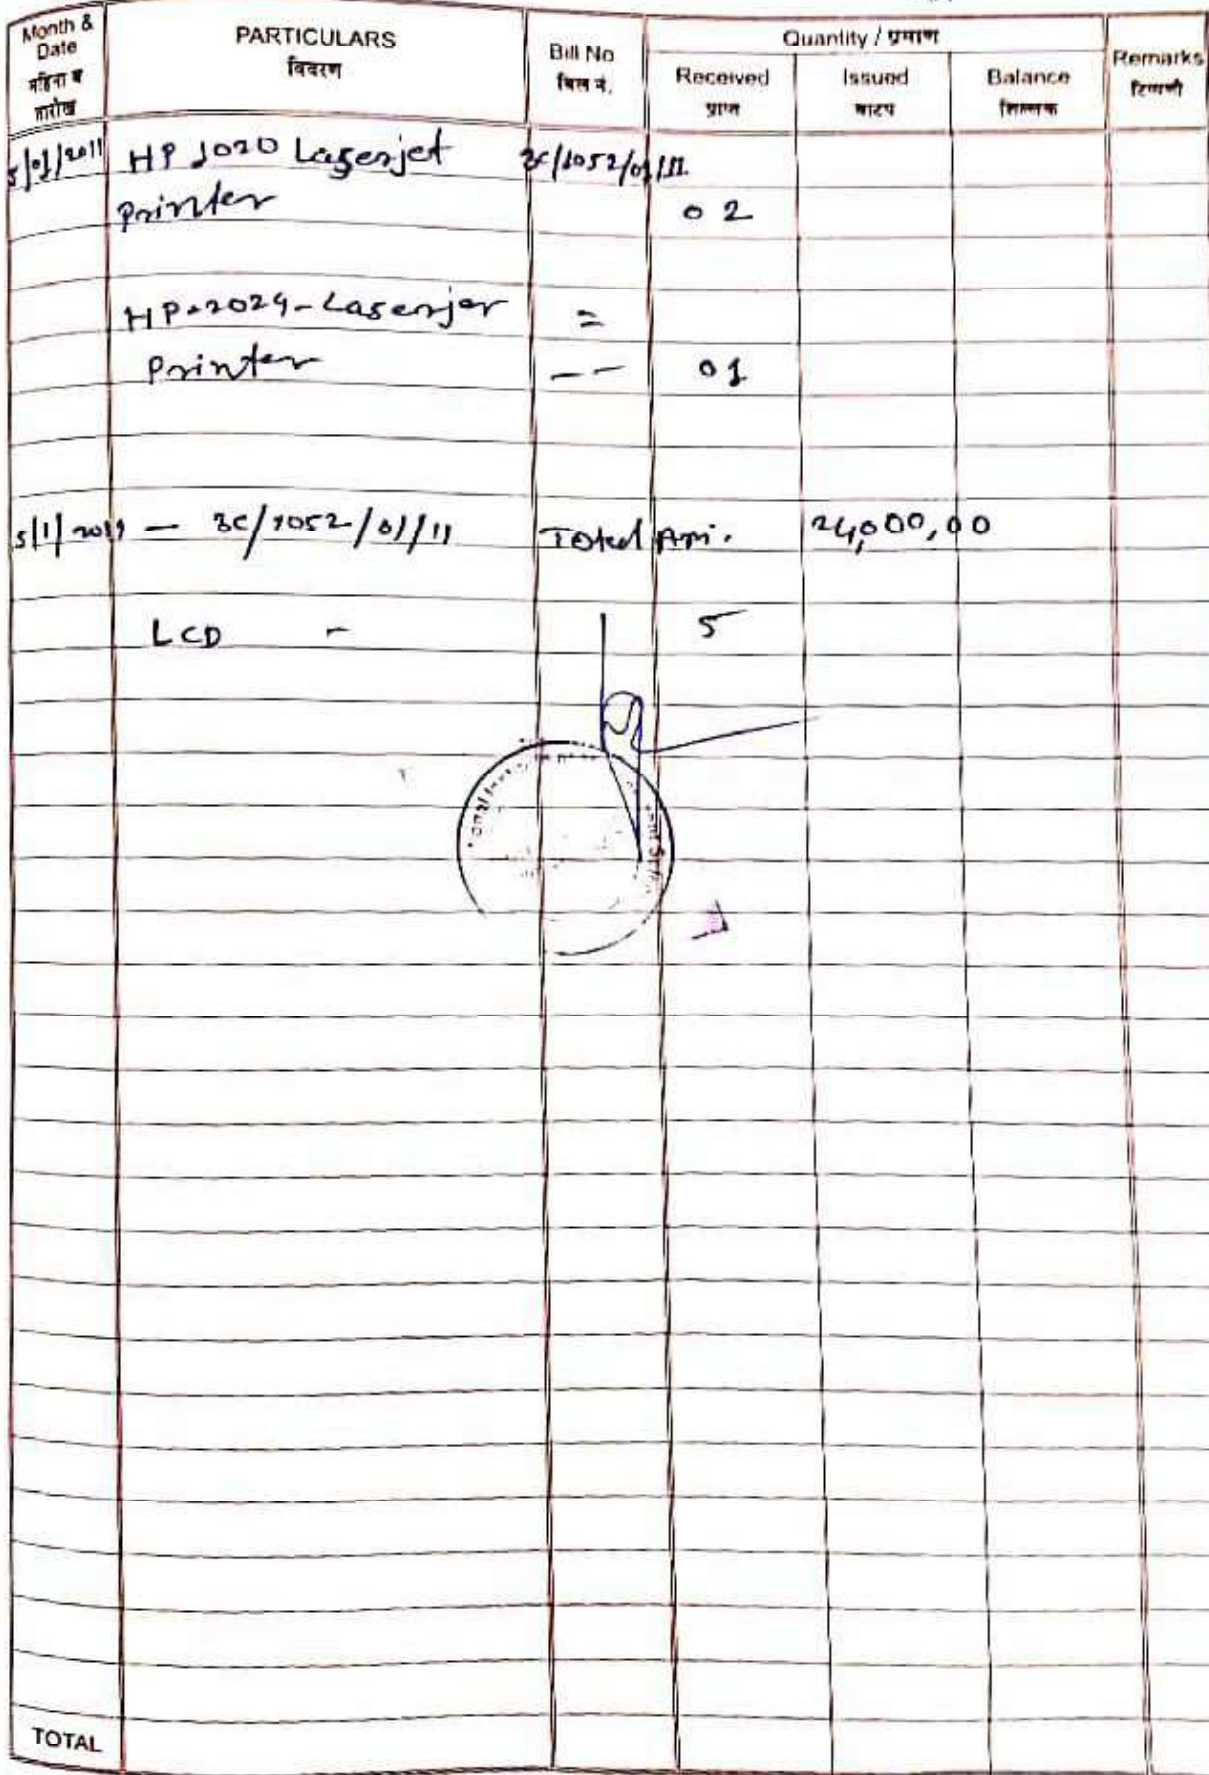 Month & Date
महिना व तारीख
PARTICULARS
विवरण
Bill No
बिल नं.
Quantity / प्रमाण
Received
प्राप्त
Issued
वाटप
Balance
शिल्लक
Remarks
टिप्पणी
5/01/2011 HP 1020 Laserjet 3C/1052/01/11
Printer 02
HP-2024-Laserjer =
Printer -- 01
5/1/2011 — 3C/1052/01/11 Total Am. 24,000,00
LCD - 5
TOTAL